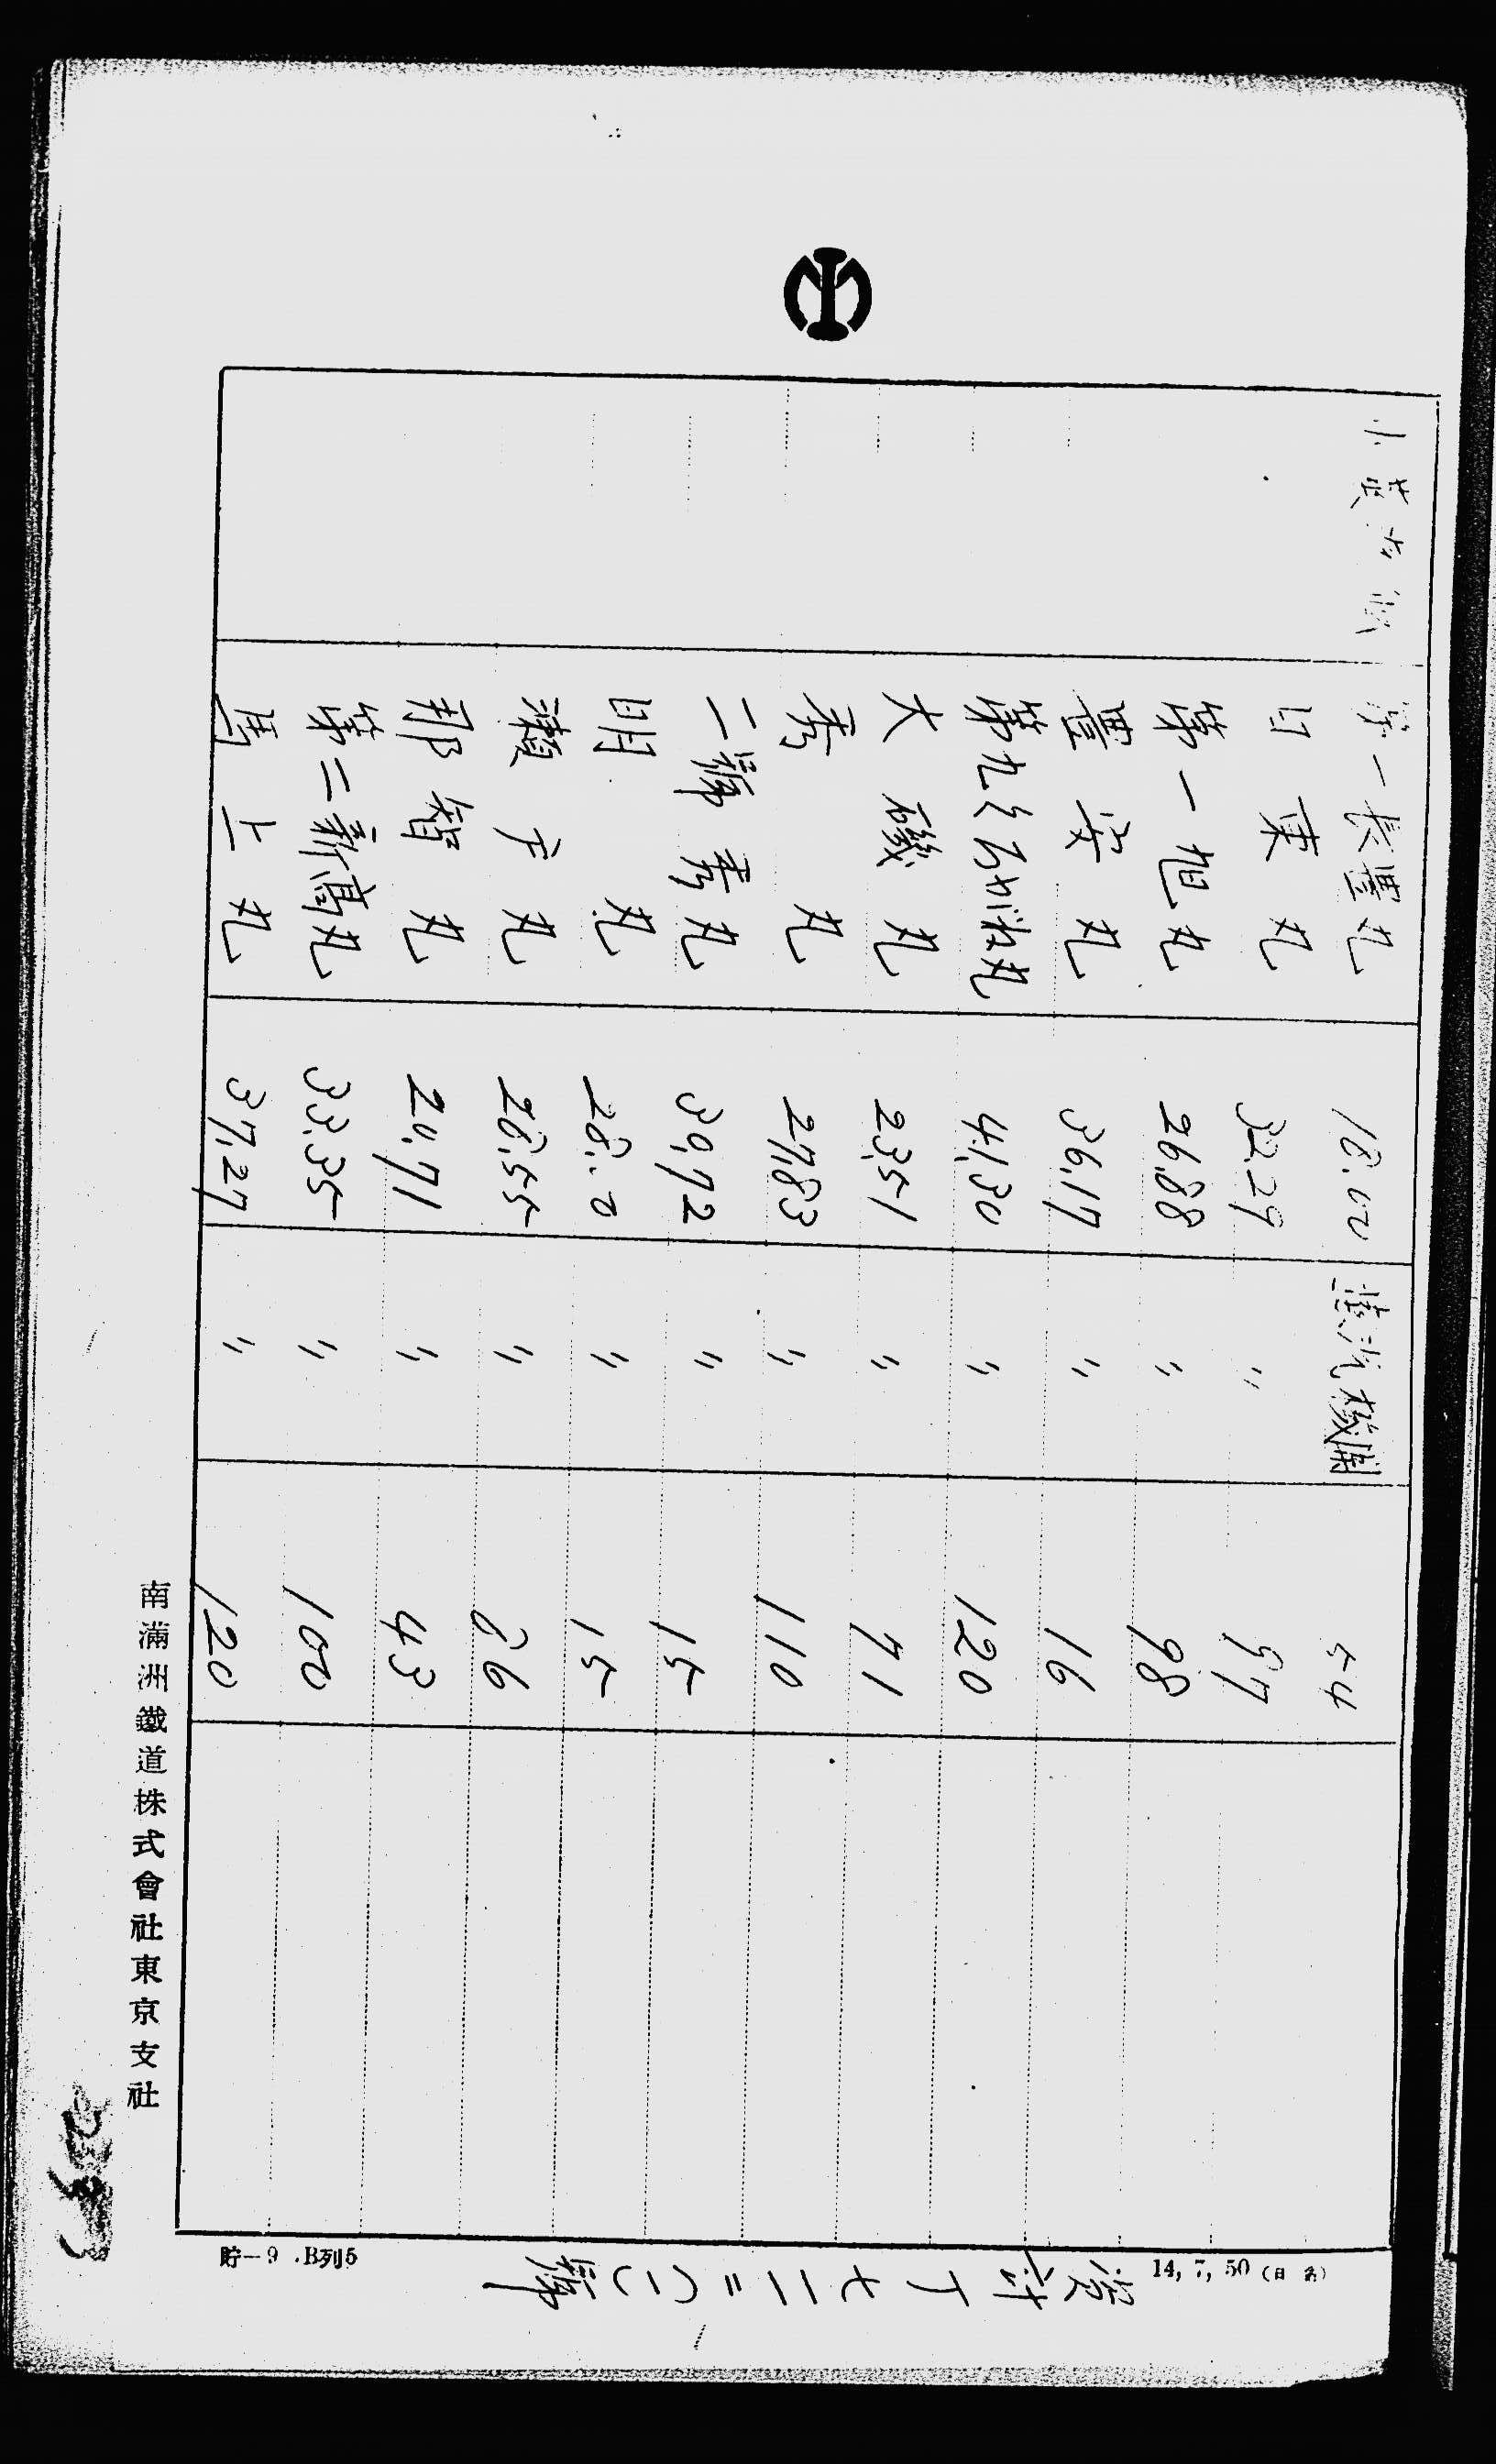 小蒸汽船 第一長豊丸 18.00 蒸汽機関 54
日東丸 32.29 〃 97
第一旭丸 26.88 〃 98
豊安丸 36.17 〃 16
第九くろがね丸 41.30 〃 120
大磯丸 23.51 〃 71
秀丸 27.83 〃 110
二號秀丸 30.72 〃 15
明丸 28.0 〃 15
瀬戸丸 28.55 〃 86
那智丸 20.71 〃 43
第二新高丸 33.35 〃 100
馬上丸 37.27 〃 120
南滿洲鐵道株式會社東京支社
貯−9 .B列5
14, 7, 50